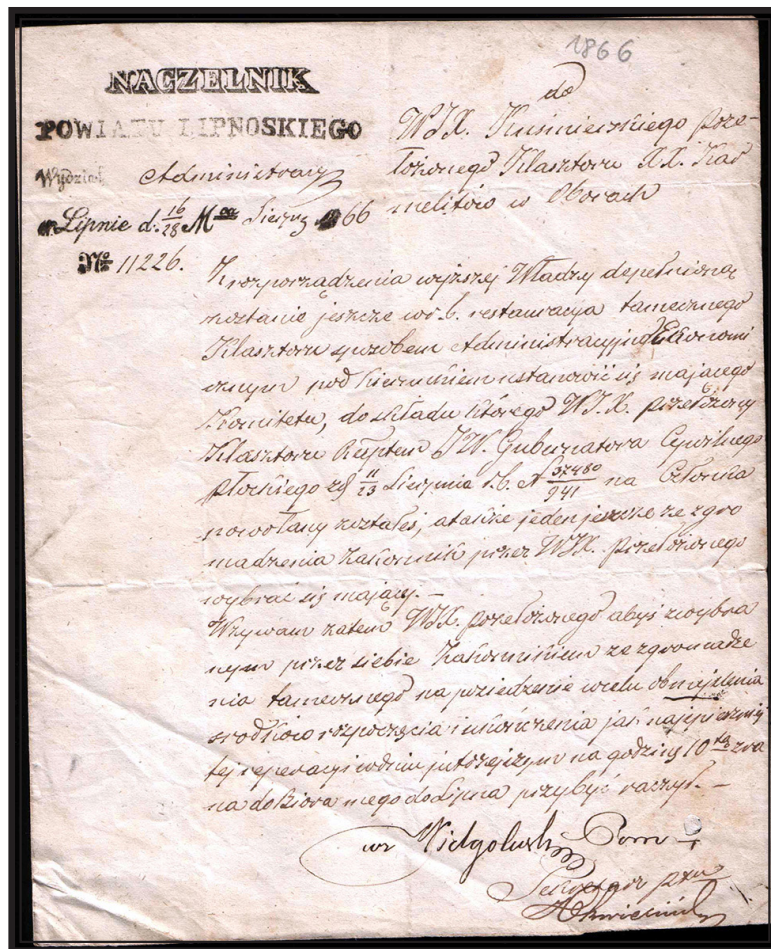 1866
NACZELNIK
POWIATU LIPNOSKIEGO
Wydział Administracyj
w Lipnie d. 16/28 M ca Sierpn 1866
No 11226.
do
WJX. Kuśmierskiego Prze-
łożonego Klasztoru XX. Kar
melitów w Oborach
Z rozporządzenia wyższej Władzy dopełnioną
zostanie jeszcze w r. b. restauracja tamecznego
Klasztoru sposobem Administracyjno Ekonomi
cznym pod kierunkiem ustanowić się mającego
Komitetu, do składu którego WJX. przełożony
Klasztoru Reskryptem JW. Gubernatora Cywilnego
Płockiego z d 11/23 Sierpnia r. b. N 37480/941 na Członka
powołany zostałeś, a także jeden jeszcze ze zgro
madzenia Zakonnik przez WJX. Przełożonego
wybrać się mający.-
Wzywam zatem WJX. Przełożonego abyś z wybra
nym przez siebie Zakonnikiem ze zgromadze
nia tamecznego na posiedzenie w celu obmyślenia
środków rozpoczęcia i ukończenia jak najspieszniej
tej reperacyi w dniu jutrzejszym na godzinę 10tą zra
na do bióra mego do Lipna przybyć raczył.-
wz
Sekretarz